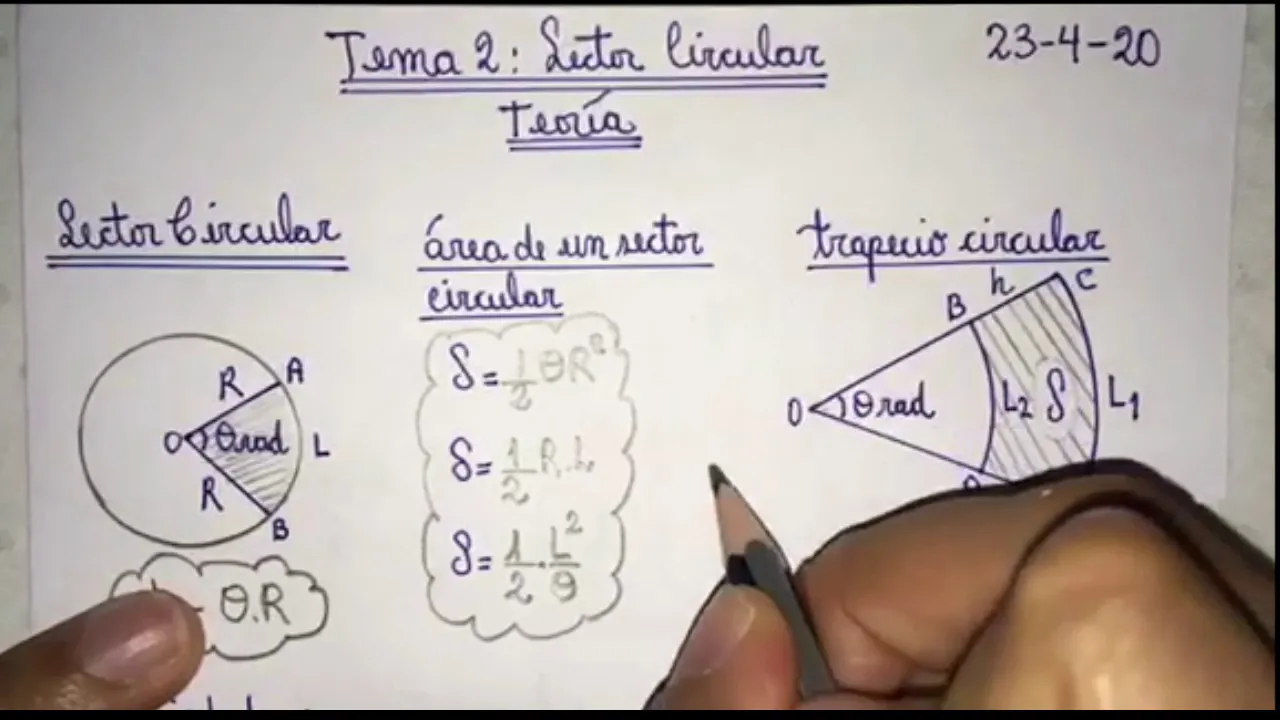 Tema 2: Sector Circular
23-4-20
Teoría
Sector Circular
R
A
O
θrad
L
R
B
θ.R
área de un sector
circular
S=1/2 θR²
S=1/2 R.L
S=1/2 . L²/θ
trapecio circular
h
C
B
O
θrad
L₂
S
L₁